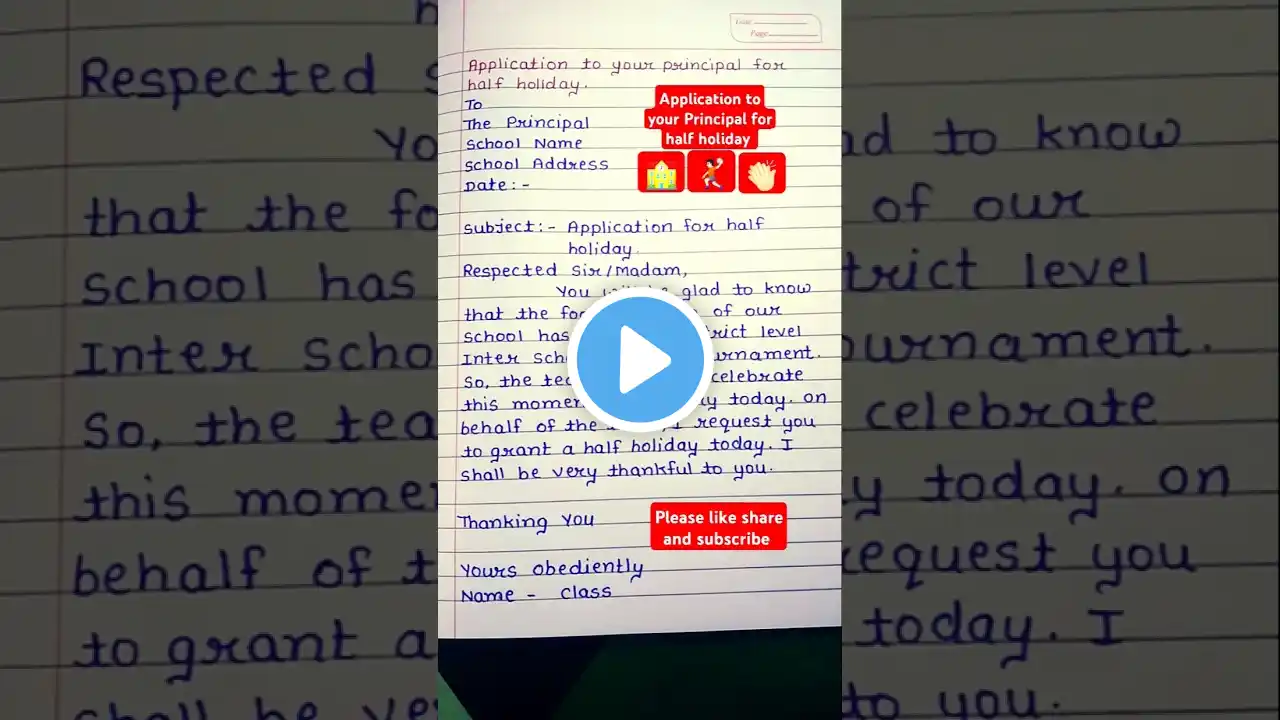 Date:
Page:
Application to your principal for
half holiday.
To
The Principal
School Name
School Address
Date:-
Application to
your Principal for
half holiday
Subject:- Application for half
holiday.
Respected Sir/Madam,
You glad to know
that the of our
school has level
Inter
So, the celebrate
this today. on
behalf of the request you
to grant a half holiday today. I
shall be very thankful to you.
Thanking You
Please like share
and subscribe
Yours obediently
Name - Class